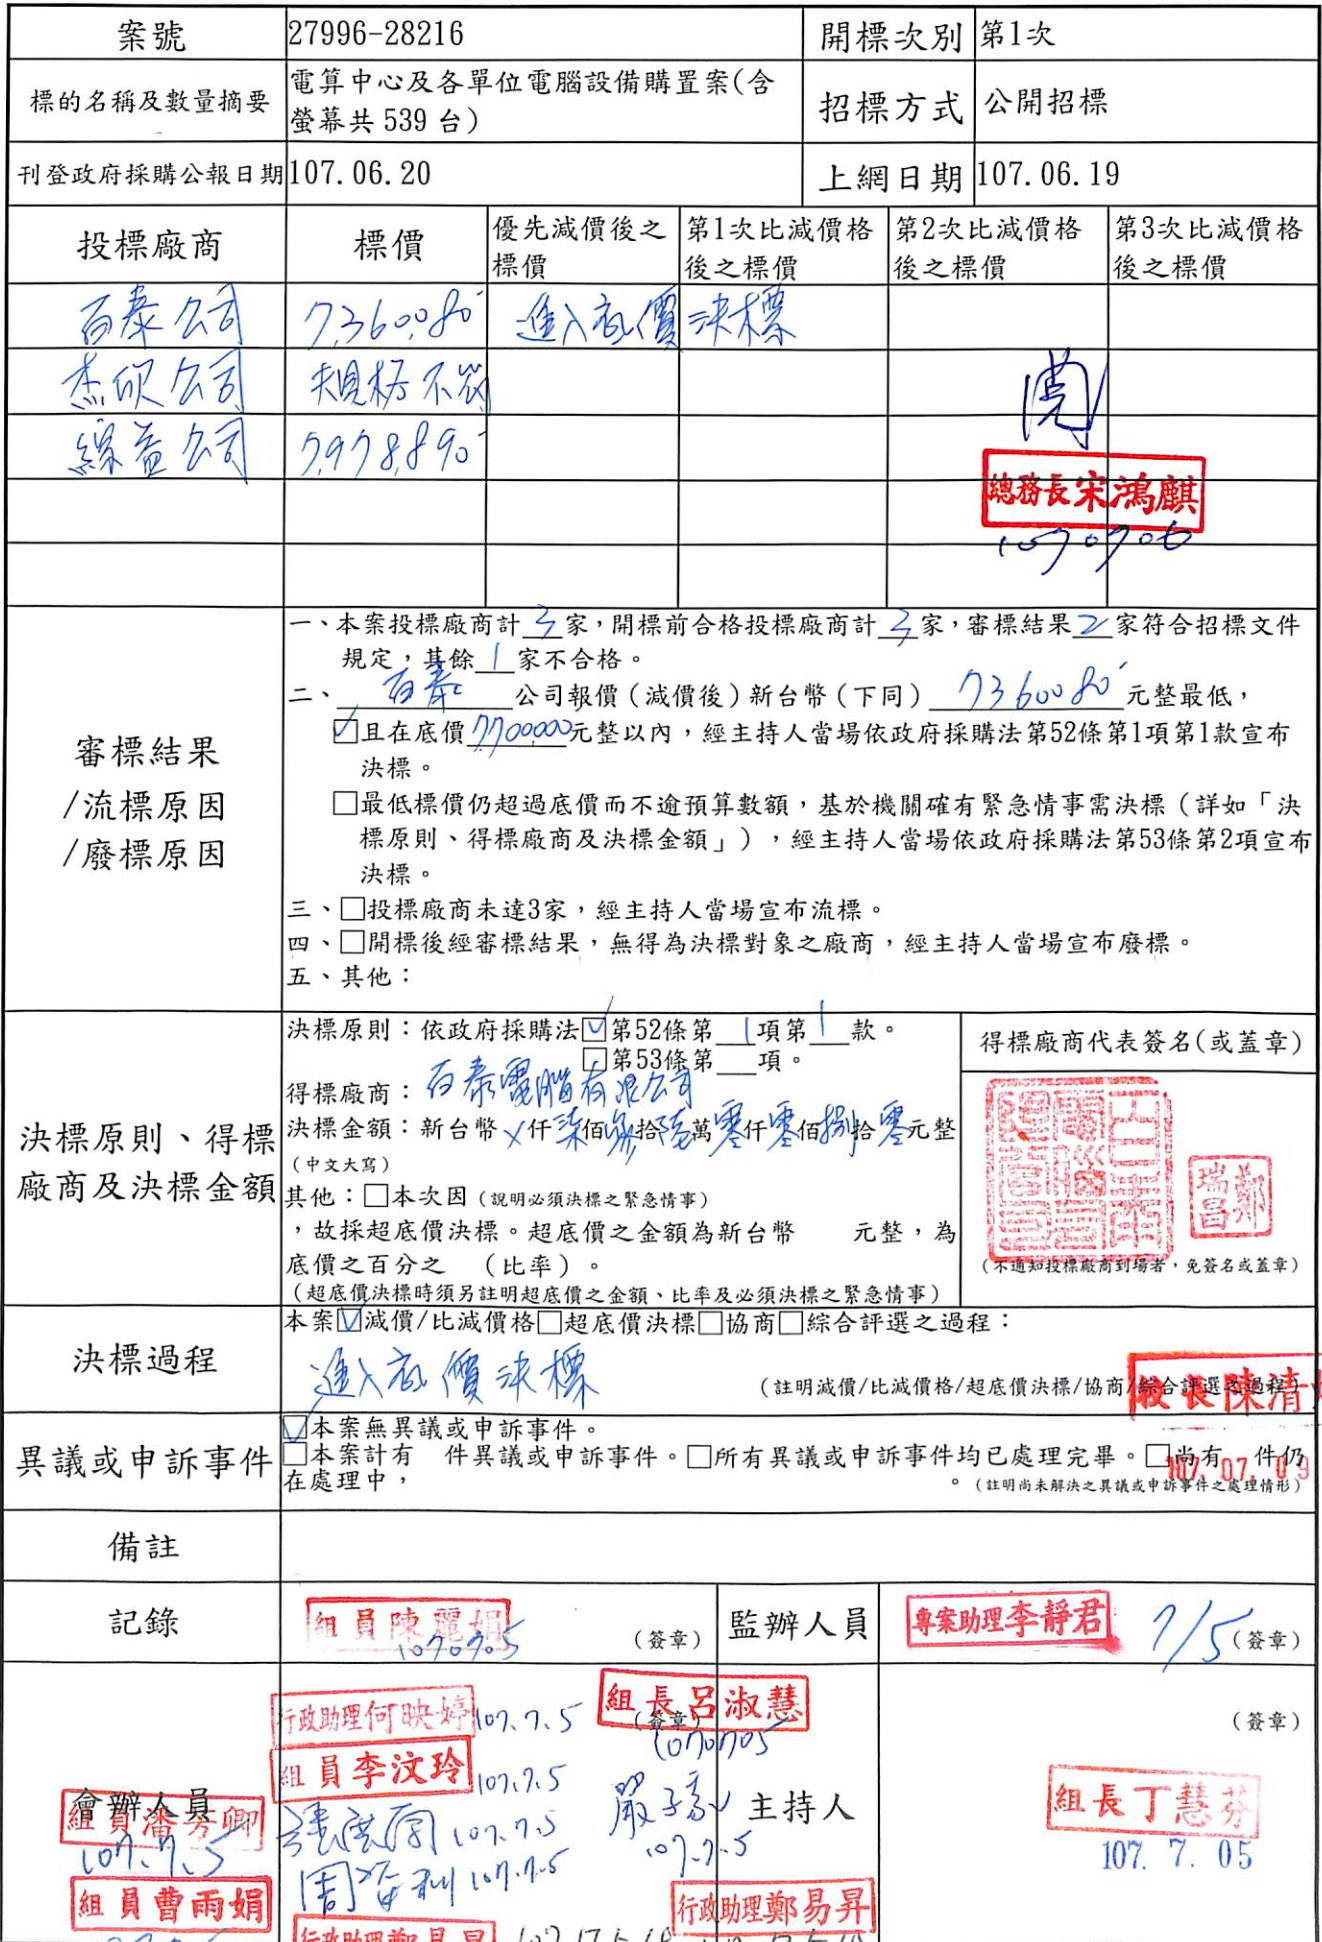 案號 27996-28216 開標次別 第1次
標的名稱及數量摘要 電算中心及各單位電腦設備購置案(含
螢幕共 539 台) 招標方式 公開招標
刊登政府採購公報日期 107.06.20 上網日期 107.06.19
投標廠商 標價 優先減價後之標價 第1次比減價格後之標價 第2次比減價格後之標價 第3次比減價格後之標價
百泰公司 7,360,080 進入底價決標
杰欣公司 規格不符
綜益公司 7,978,890
閱
總務長宋鴻麒
1070706
審標結果
/流標原因
/廢標原因
一、本案投標廠商計3家，開標前合格投標廠商計3家，審標結果2家符合招標文件
規定，其餘1家不合格。
二、百泰公司報價（減價後）新台幣（下同）7360080元整最低，
☑且在底價7700000元整以內，經主持人當場依政府採購法第52條第1項第1款宣布
決標。
□最低標價仍超過底價而不逾預算數額，基於機關確有緊急情事需決標（詳如「決
標原則、得標廠商及決標金額」），經主持人當場依政府採購法第53條第2項宣布
決標。
三、□投標廠商未達3家，經主持人當場宣布流標。
四、□開標後經審標結果，無得為決標對象之廠商，經主持人當場宣布廢標。
五、其他：
決標原則、得標
廠商及決標金額
決標原則：依政府採購法☑第52條第1項第1款。
□第53條第 項。
得標廠商：百泰電腦有限公司
決標金額：新台幣X仟柒佰參拾陸萬零仟零佰捌拾零元整
（中文大寫）
其他：□本次因（說明必須決標之緊急情事）
，故採超底價決標。超底價之金額為新台幣 元整，為
底價之百分之 （比率）。
（超底價決標時須另註明超底價之金額、比率及必須決標之緊急情事）
得標廠商代表簽名(或蓋章)
鄭瑞昌
（不通知投標廠商到場者，免簽名或蓋章）
決標過程
本案☑減價/比減價格□超底價決標□協商□綜合評選之過程：
進入底價決標
（註明減價/比減價格/超底價決標/協商/綜合評選之過程）
校長陳清
107.07.09
異議或申訴事件
☑本案無異議或申訴事件。
□本案計有 件異議或申訴事件。□所有異議或申訴事件均已處理完畢。□尚有 件仍
在處理中， 。（註明尚未解決之異議或申訴事件之處理情形）
備註
記錄 組員陳麗娟 1070705 （簽章） 監辦人員 專案助理李靜君 7/5 （簽章）
行政助理何映婷 107.7.5 （簽章） 組長呂淑慧 1070705 （簽章）
組員李汶玲 107.7.5
會辦人員 主持人 組長丁慧芬
組員潘芳卿 107.7.5 107.7.5 107.7.5 107. 7. 05
107.7.5
組員曹雨娟 行政助理鄭易昇
行政助理鄭易昇